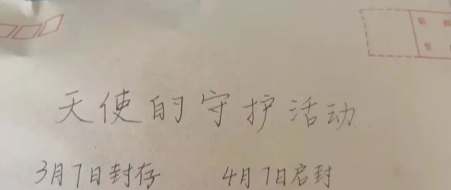 天使的守护活动
3月7日封存 4月7日启封